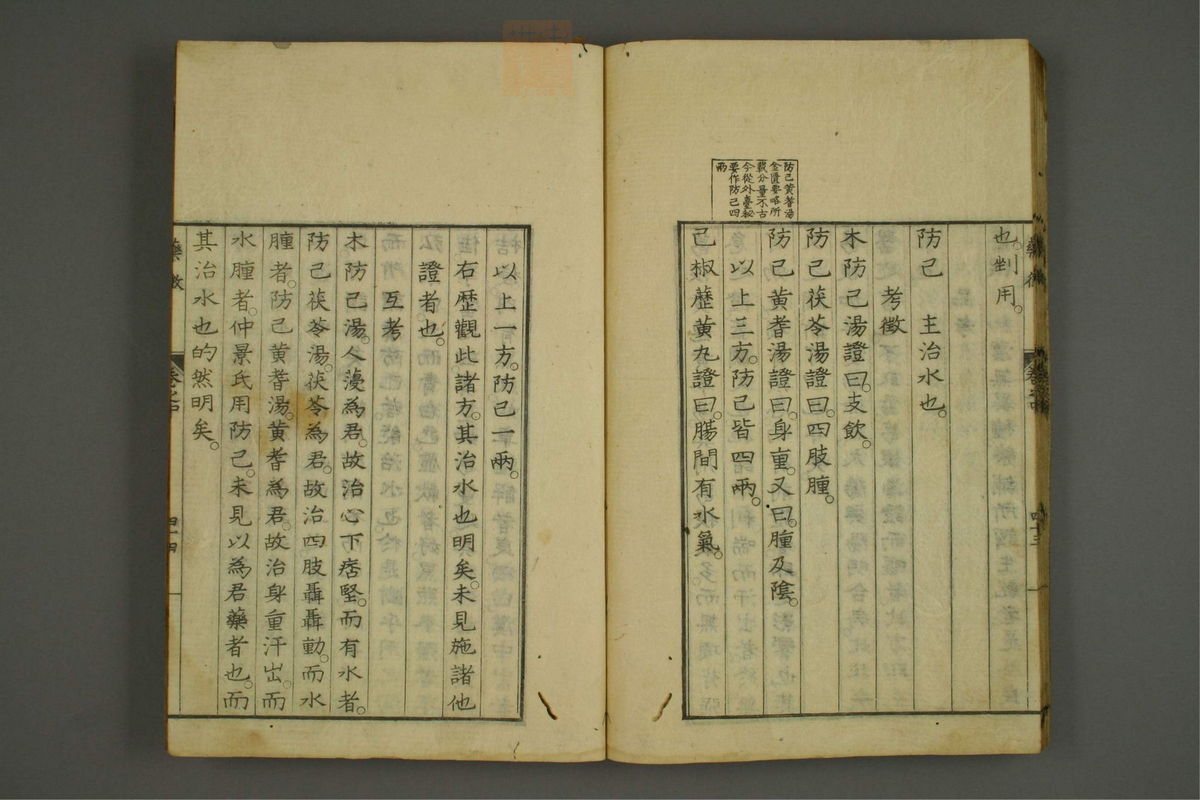 也。剉用。
防己　主治水也。
考徵
木防己湯證曰。支飲。
防己茯苓湯證曰。四肢腫。
防己黃耆湯證曰。身重。又曰。腫及陰。
以上三方。防己皆四兩。
己椒藶黃丸證曰。腸間有水氣。
防己黃耆湯
金匱要略所
載分量不古
今從外臺秘
要作防己四
兩
藥徵
卷之中
四十三
以上一方。防己一兩。
右歷觀此諸方。其治水也明矣。未見施諸他
證者也。
互考
木防己湯。人薓為君。故治心下痞堅。而有水者。
防己茯苓湯。茯苓為君。故治四肢聶聶動。而水
腫者。防己黃耆湯。黃耆為君。故治身重汗出。而
水腫者。仲景氏用防己。未見以為君藥者也。而
其治水也的然明矣。
藥徵
四十四